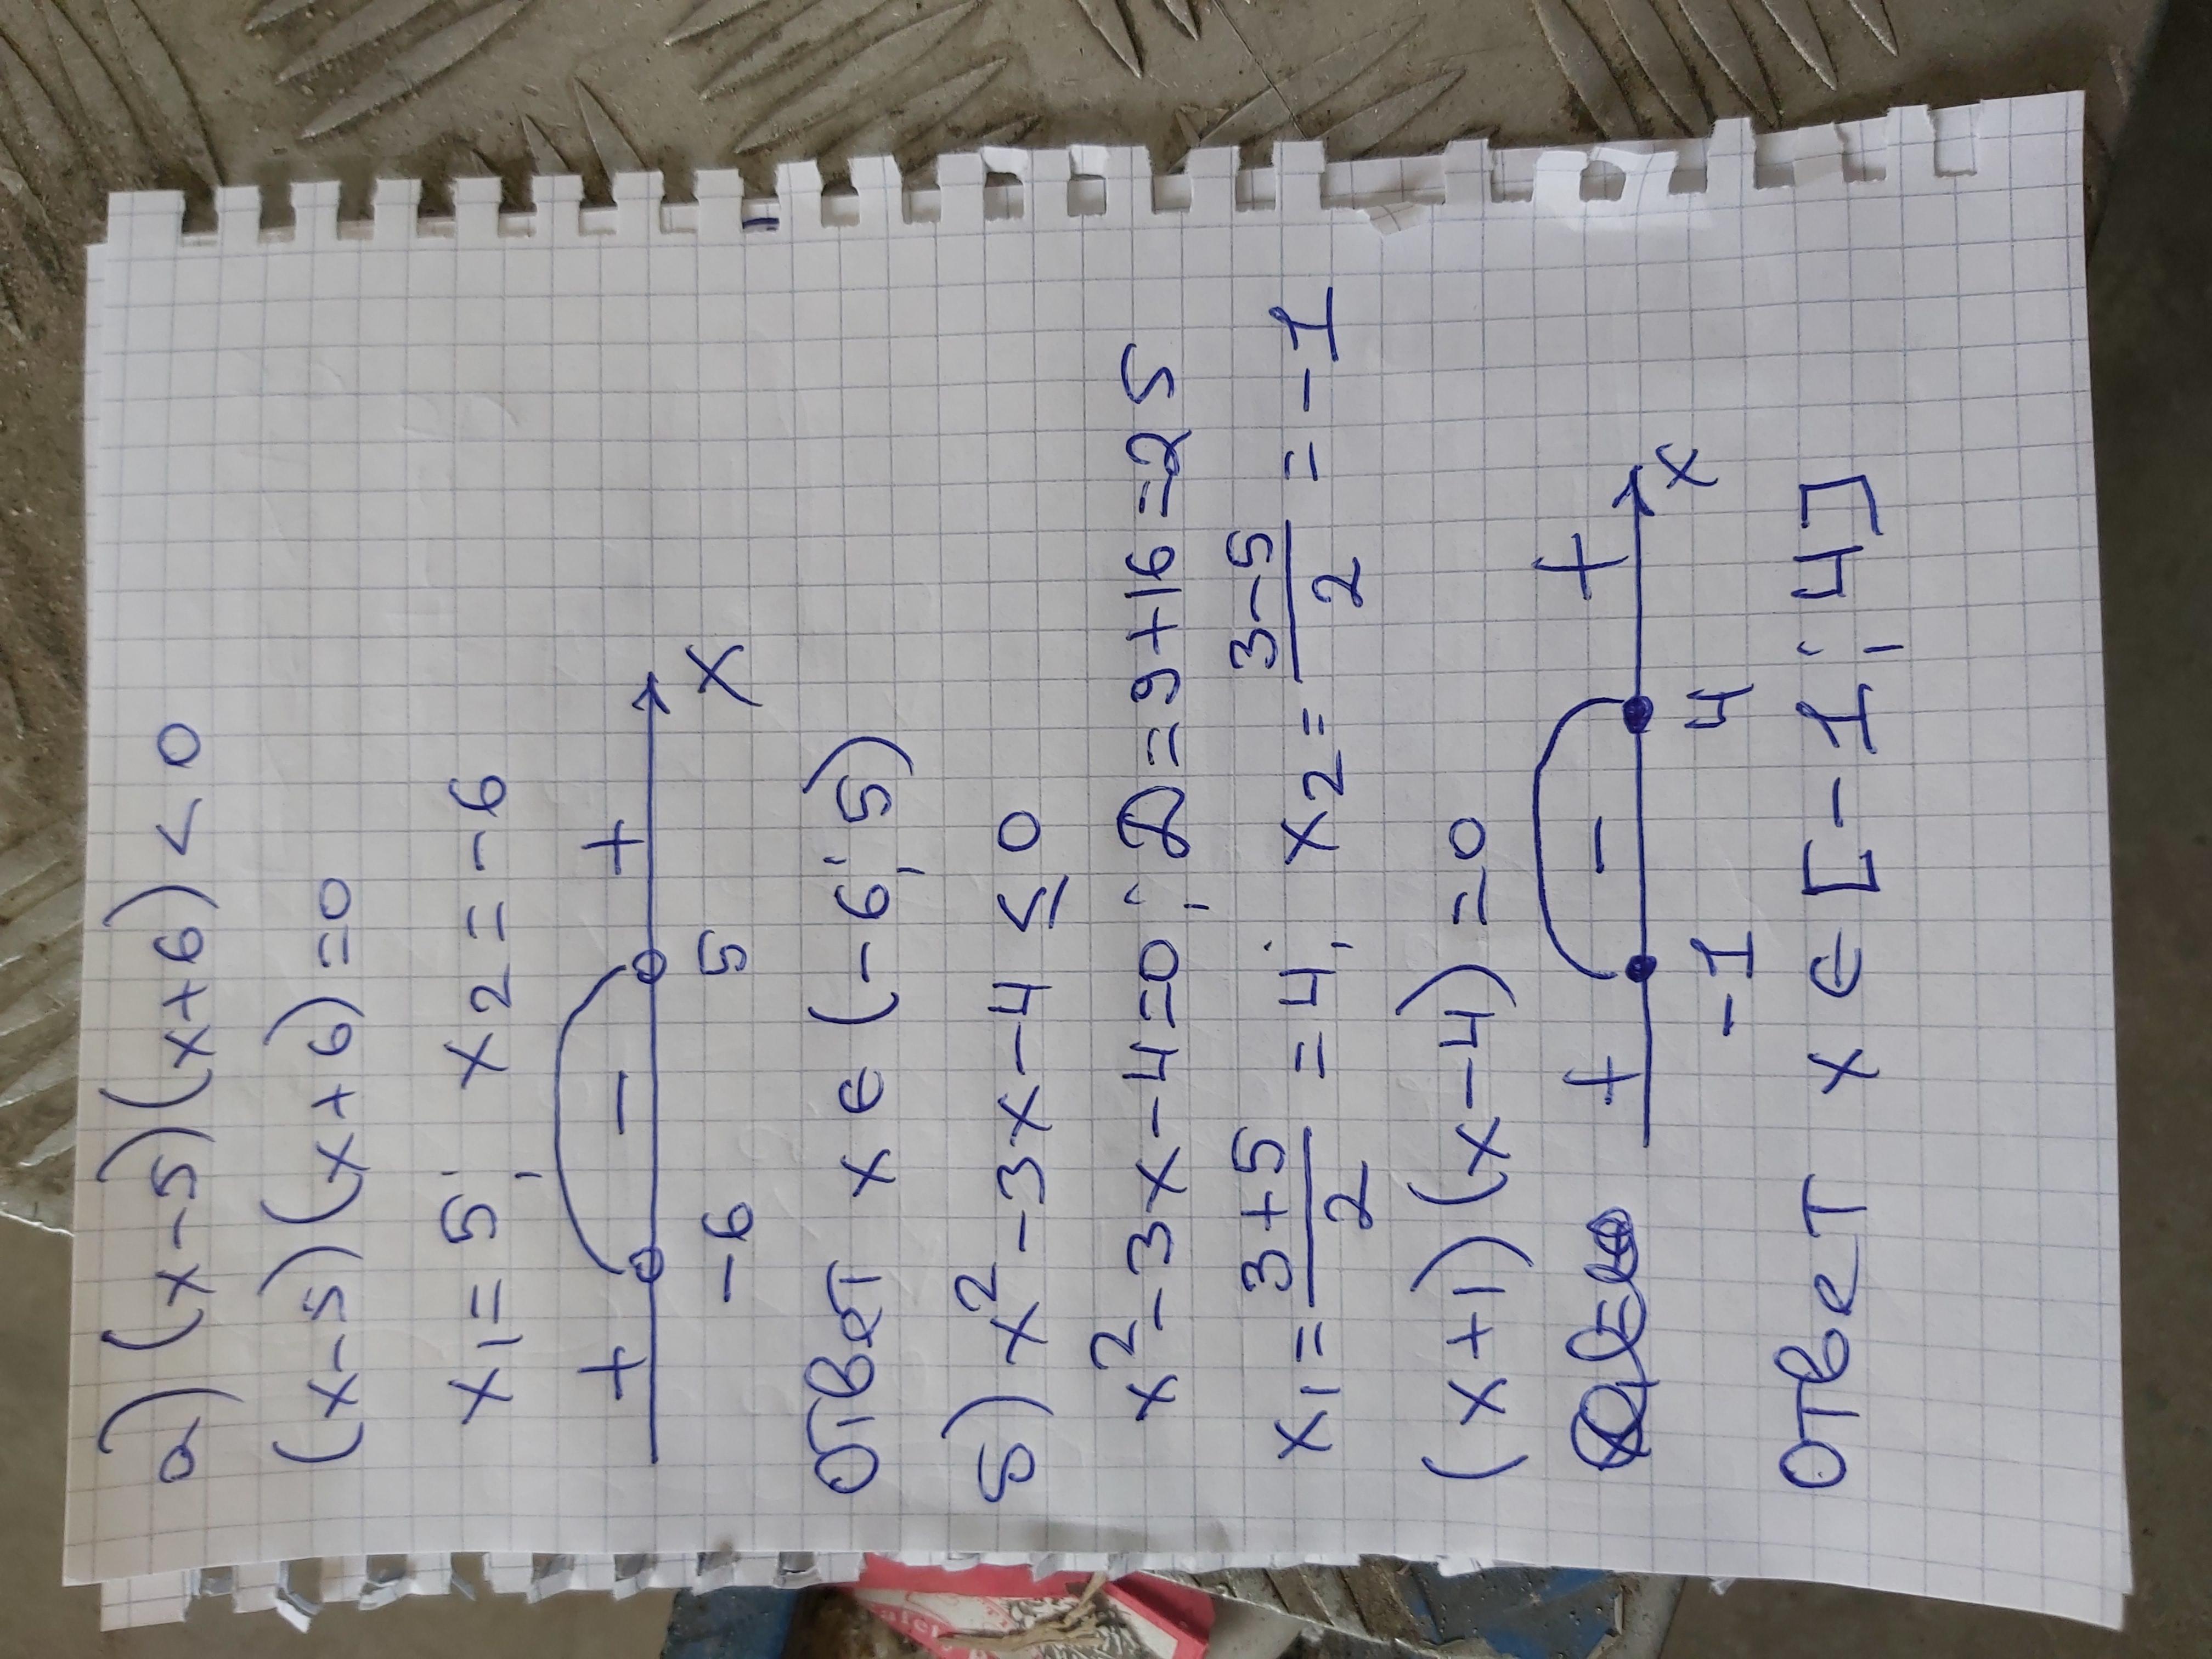 а) (x-5)(x+6)<0
(x-5)(x+6)=0
x1=5; x2=-6
+ - + 
-6 5 x
Ответ x ∈ (-6; 5)
б) x²-3x-4 ≤ 0
x²-3x-4=0; D=9+16=25
x1=(3+5)/2=4; x2=(3-5)/2=-1
(x+1)(x-4)=0
+ - +
-1 4 x
Ответ x ∈ [-1; 4]